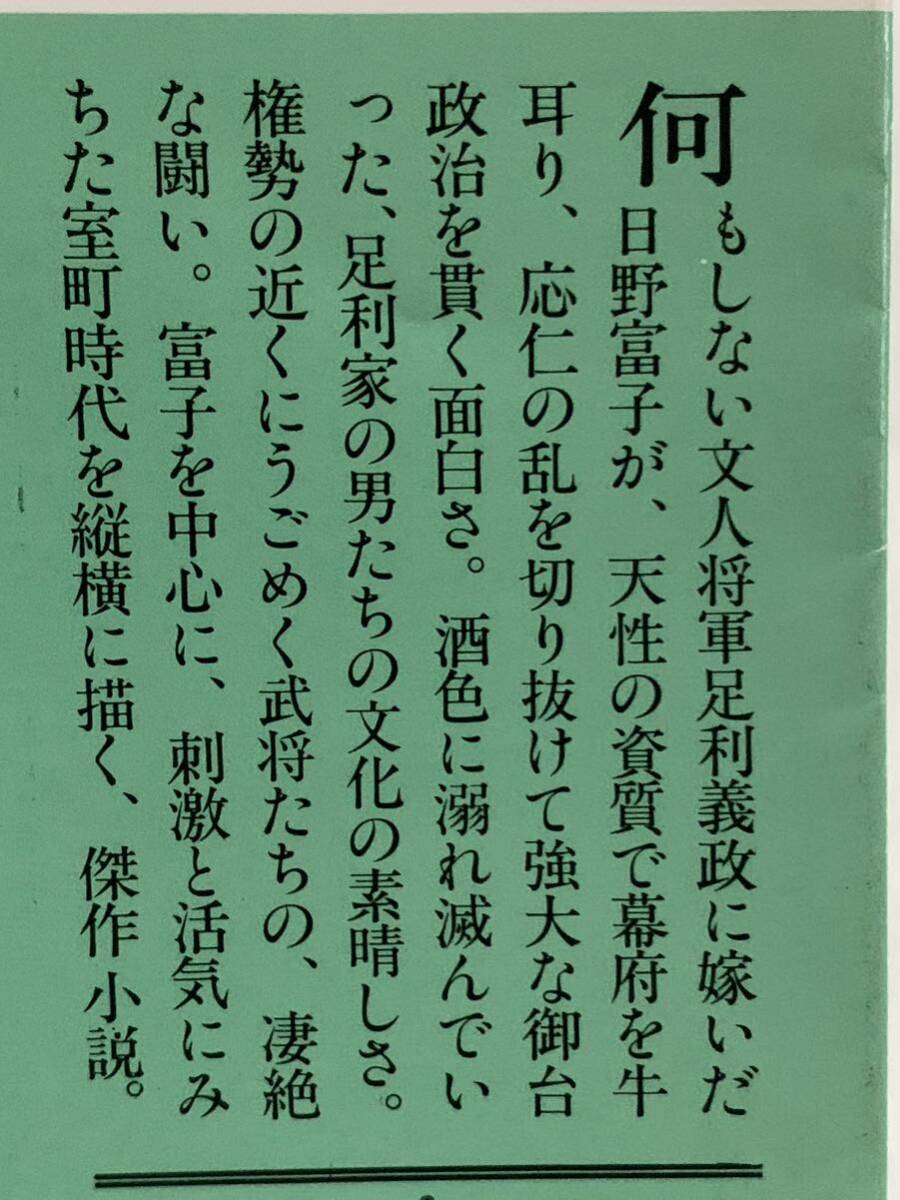 何もしない文人将軍足利義政に嫁いだ
日野富子が、天性の資質で幕府を牛
耳り、応仁の乱を切り抜けて強大な御台
政治を貫く面白さ。酒色に溺れ滅んでい
った、足利家の男たちの文化の素晴しさ。
権勢の近くにうごめく武将たちの、凄絶
な闘い。富子を中心に、刺激と活気にみ
ちた室町時代を縦横に描く、傑作小説。